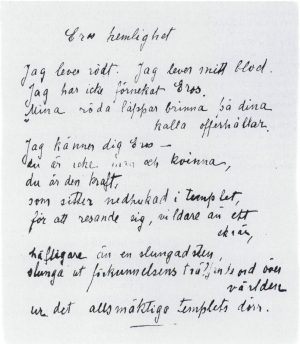 Eros hemlighet
Jag lever rödt. Jag lever mitt blod.
Jag har icke förnekat Eros.
Mina röda läppar brinna på dina
kalla offerhällar.
Jag känner dig Eros —
du är icke man och kvinna,
du är den kraft,
som sitter nedhukad i templet,
för att resande sig, vildare än ett
skrän,
häftigare än en slungad sten
slunga ut förkunnelsens träffande ord över
världen
ur det allsmäktiga templets dörr.